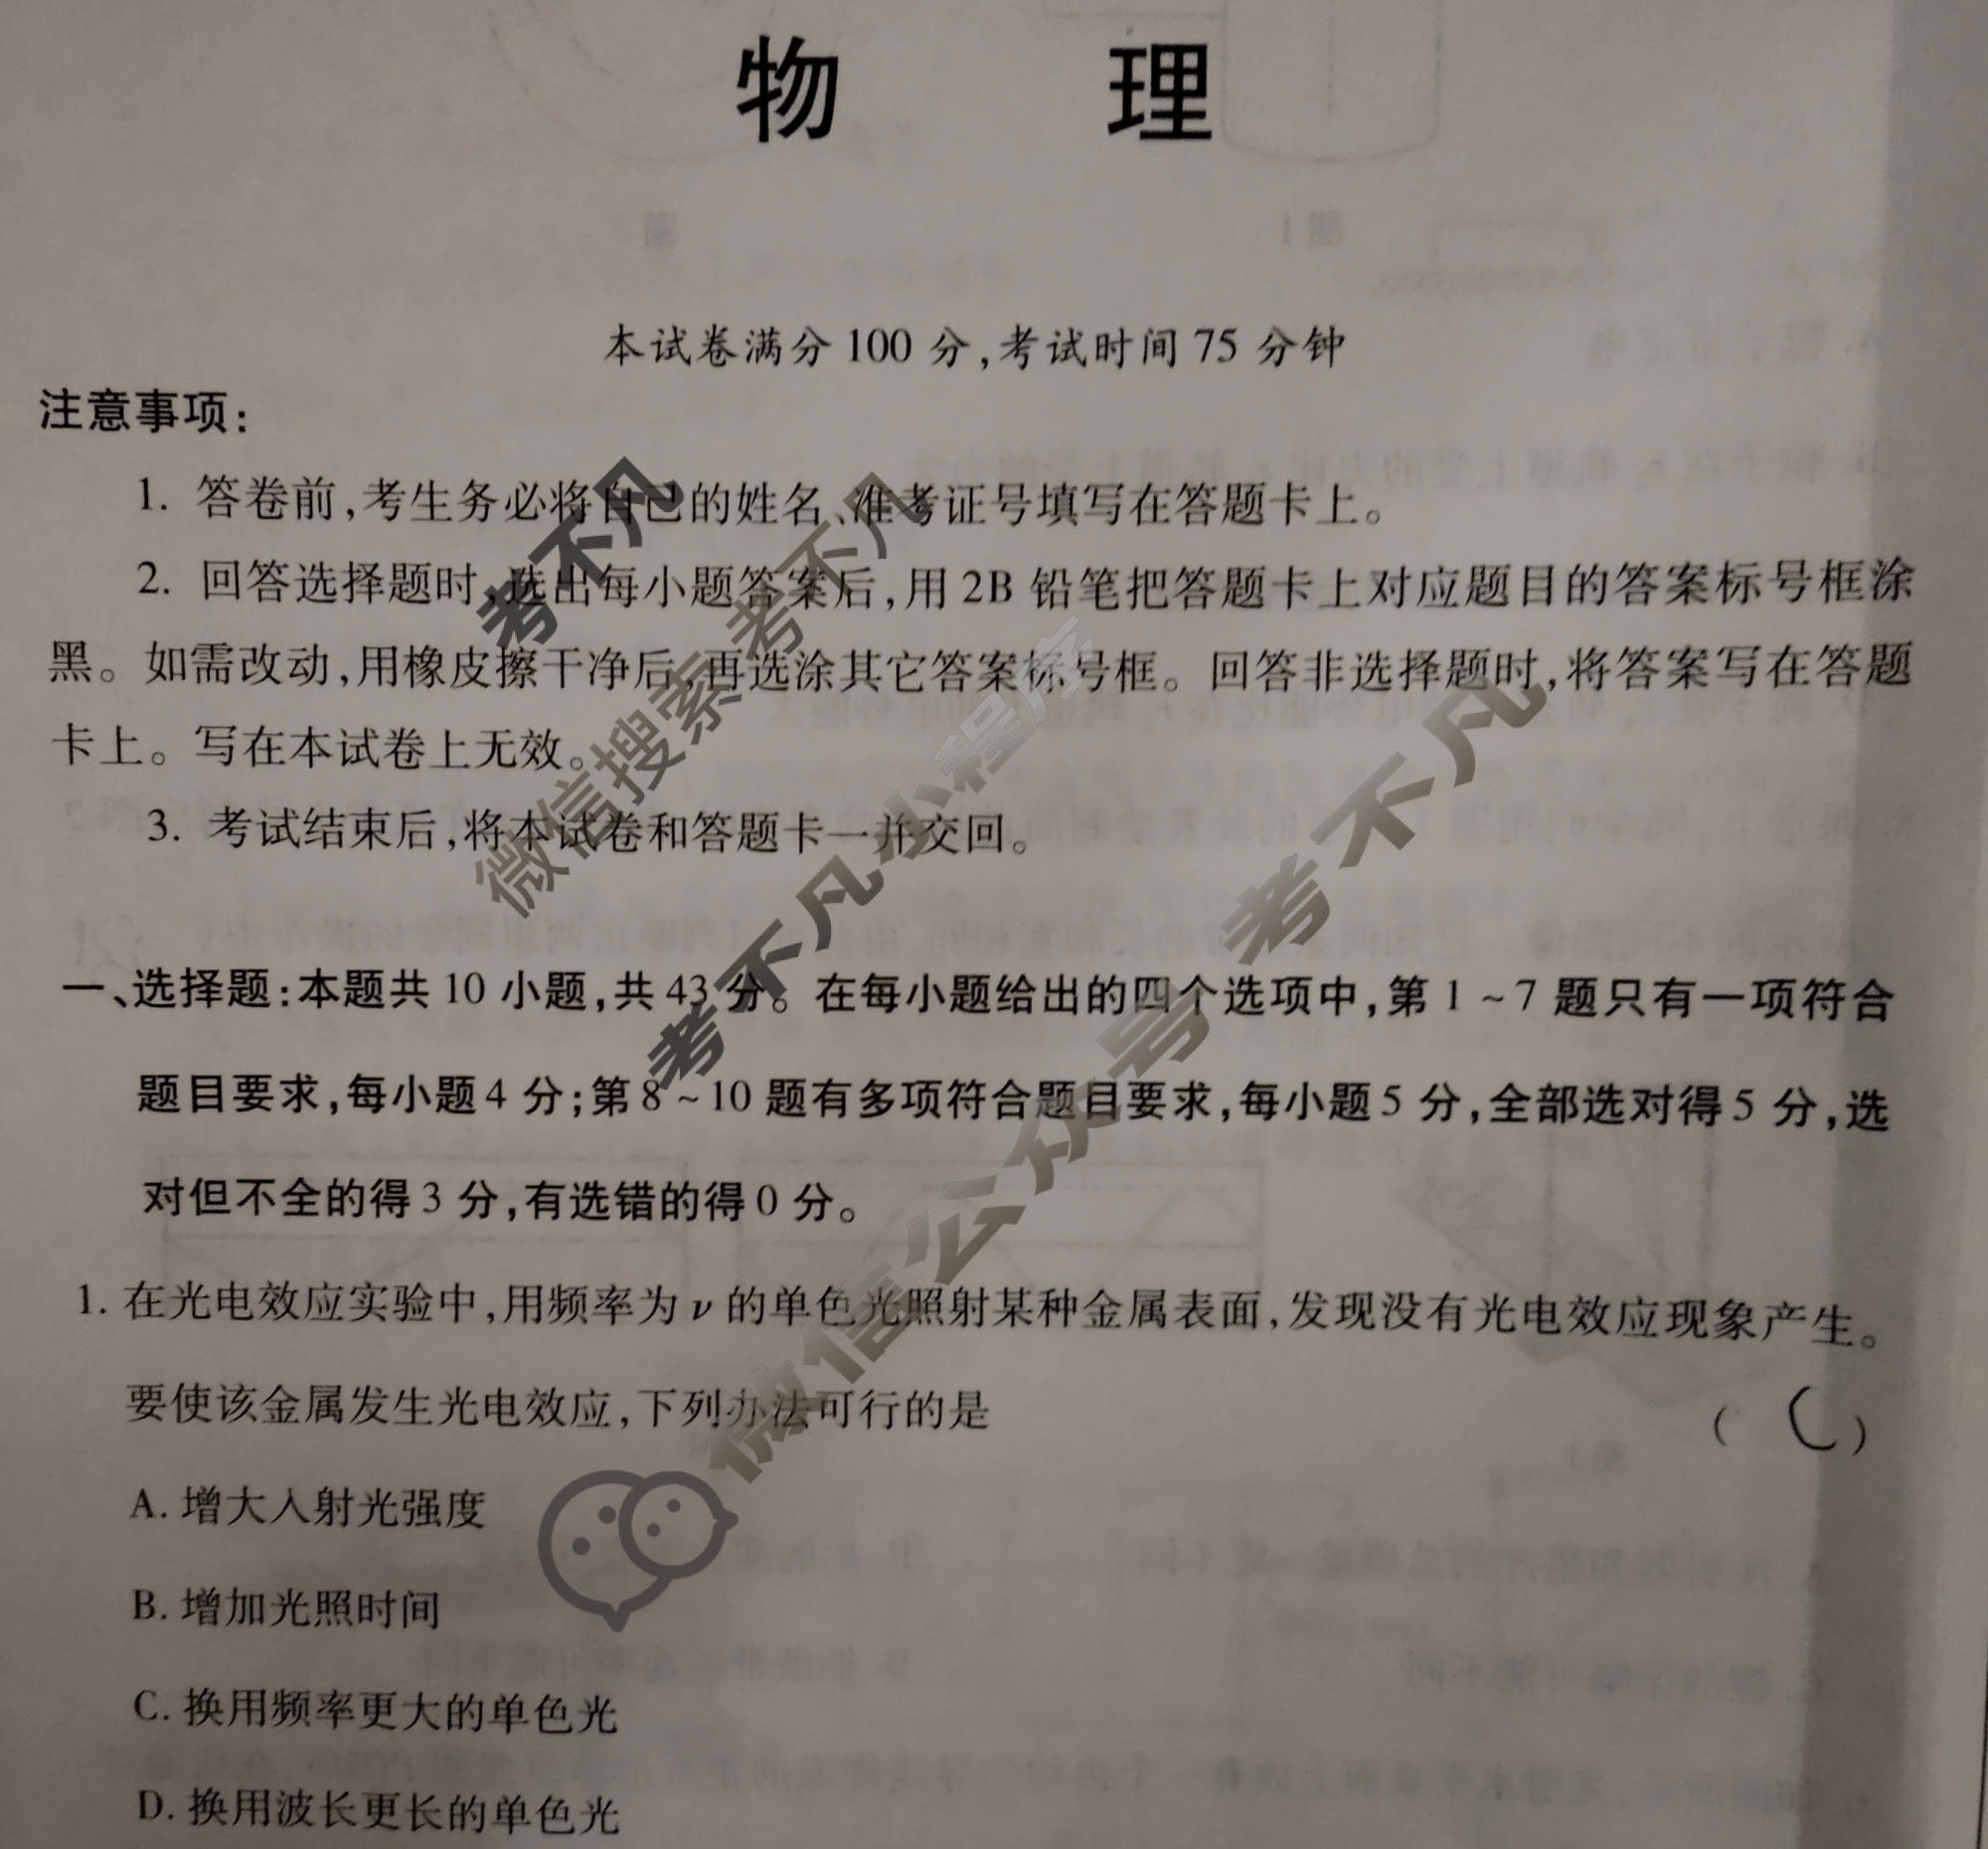 物 理
本试卷满分 100 分,考试时间 75 分钟
注意事项:
1. 答卷前,考生务必将自己的姓名、准考证号填写在答题卡上。
2. 回答选择题时,选出每小题答案后,用 2B 铅笔把答题卡上对应题目的答案标号框涂
黑。如需改动,用橡皮擦干净后,再选涂其它答案标号框。回答非选择题时,将答案写在答题
卡上。写在本试卷上无效。
3. 考试结束后,将本试卷和答题卡一并交回。
一、选择题:本题共 10 小题,共 43 分。在每小题给出的四个选项中,第 1 ~ 7 题只有一项符合
题目要求,每小题 4 分;第 8 ~ 10 题有多项符合题目要求,每小题 5 分,全部选对得 5 分,选
对但不全的得 3 分,有选错的得 0 分。
1. 在光电效应实验中,用频率为 ν 的单色光照射某种金属表面,发现没有光电效应现象产生。
要使该金属发生光电效应,下列办法可行的是 ( C )
A. 增大入射光强度
B. 增加光照时间
C. 换用频率更大的单色光
D. 换用波长更长的单色光
考不凡
微信搜索 考不凡
考不凡小程序
微信公众号 考不凡